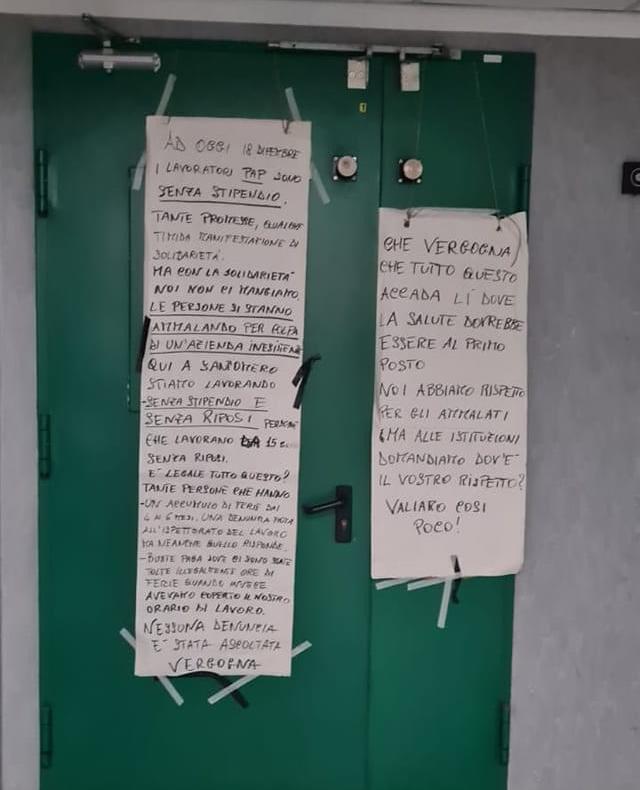 AD OGGI 18 DICEMBRE
I LAVORATORI PAP SONO
SENZA STIPENDIO.
TANTE PROMESSE, QUALCHE
TIMIDA MANIFESTAZIONE DI
SOLIDARIETÀ.
MA CON LA SOLIDARIETÀ
NOI NON CI MANGIAMO.
LE PERSONE SI STANNO
AMMALANDO PER COLPA
DI UN'AZIENDA INESISTENTE
QUI A SANT'OMERO
STIAMO LAVORANDO
-SENZA STIPENDIO E
SENZA RIPOSI PERSONE
CHE LAVORANO DA 15
SENZA RIPOSI.
E' LEGALE TUTTO QUESTO?
TANTE PERSONE CHE HANNO
-UN ACCUMULO DI FERIE DAI
4 AI 6 MESI. UNA DENUNCIA FATTA
ALL'ISPETTORATO DEL LAVORO
MA NEANCHE QUELLO RISPONDE.
-BUSTE PAGA DOVE CI SONO STATE
TOLTE ILLEGALMENTE ORE DI
FERIE QUANDO INVECE
AVEVAMO COPERTO IL NOSTRO
ORARIO DI LAVORO.
NESSUNA DENUNCIA
E' STATA ASCOLTATA
VERGOGNA
CHE VERGOGNA
CHE TUTTO QUESTO
ACCADA LÌ DOVE
LA SALUTE DOVREBBE
ESSERE AL PRIMO
POSTO
NOI ABBIAMO RISPETTO
PER GLI AMMALATI
MA ALLE ISTITUZIONI
DOMANDIAMO DOV'E'
IL VOSTRO RISPETTO?
VALIAMO COSI
POCO!